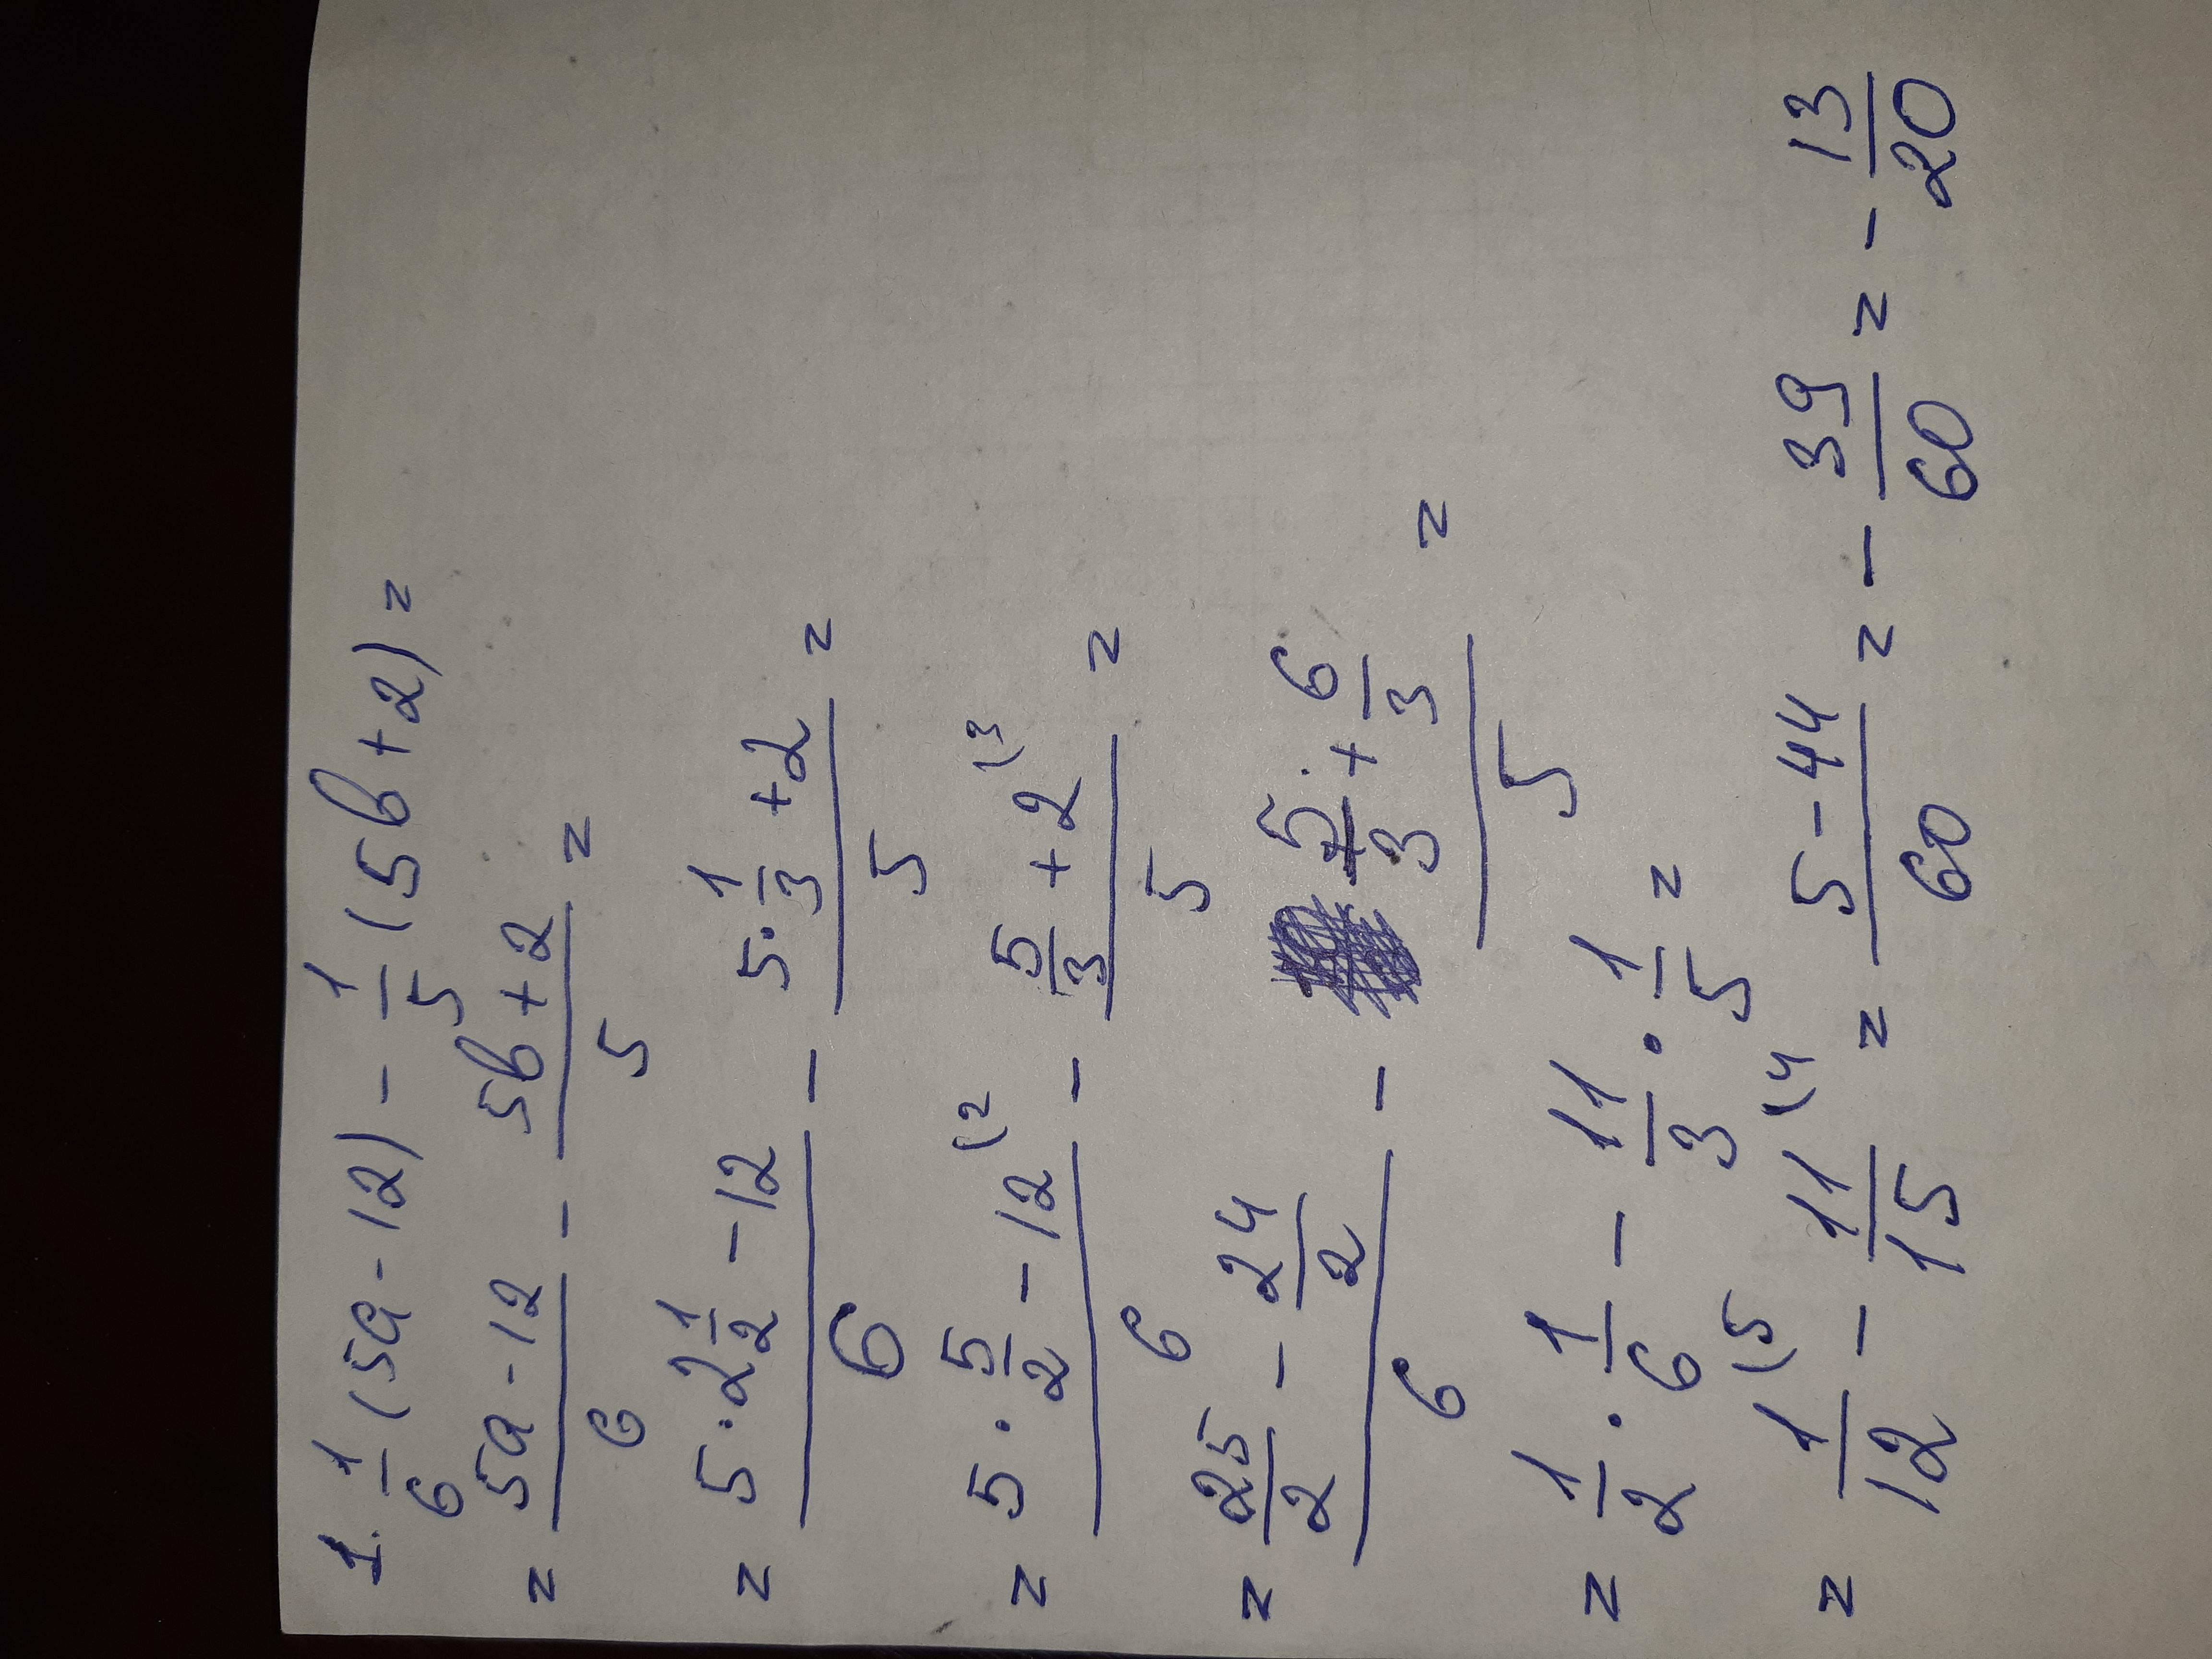 1. 1/6 (5a - 12) - 1/5 (5b + 2) =
= (5a - 12)/6 - (5b + 2)/5 =
= (5 · 2 1/2 - 12)/6 - (5 · 1/3 + 2)/5 =
= (5 · 5/2 - 12⁽²)/6 - (5/3 + 2⁽³)/5 =
= (25/2 - 24/2)/6 - (5/3 + 6/3)/5 =
= 1/2 · 1/6 - 11/3 · 1/5 =
= 1/12⁽⁵ - 11/15⁽⁴ = (5 - 44)/60 = - 39/60 = - 13/20